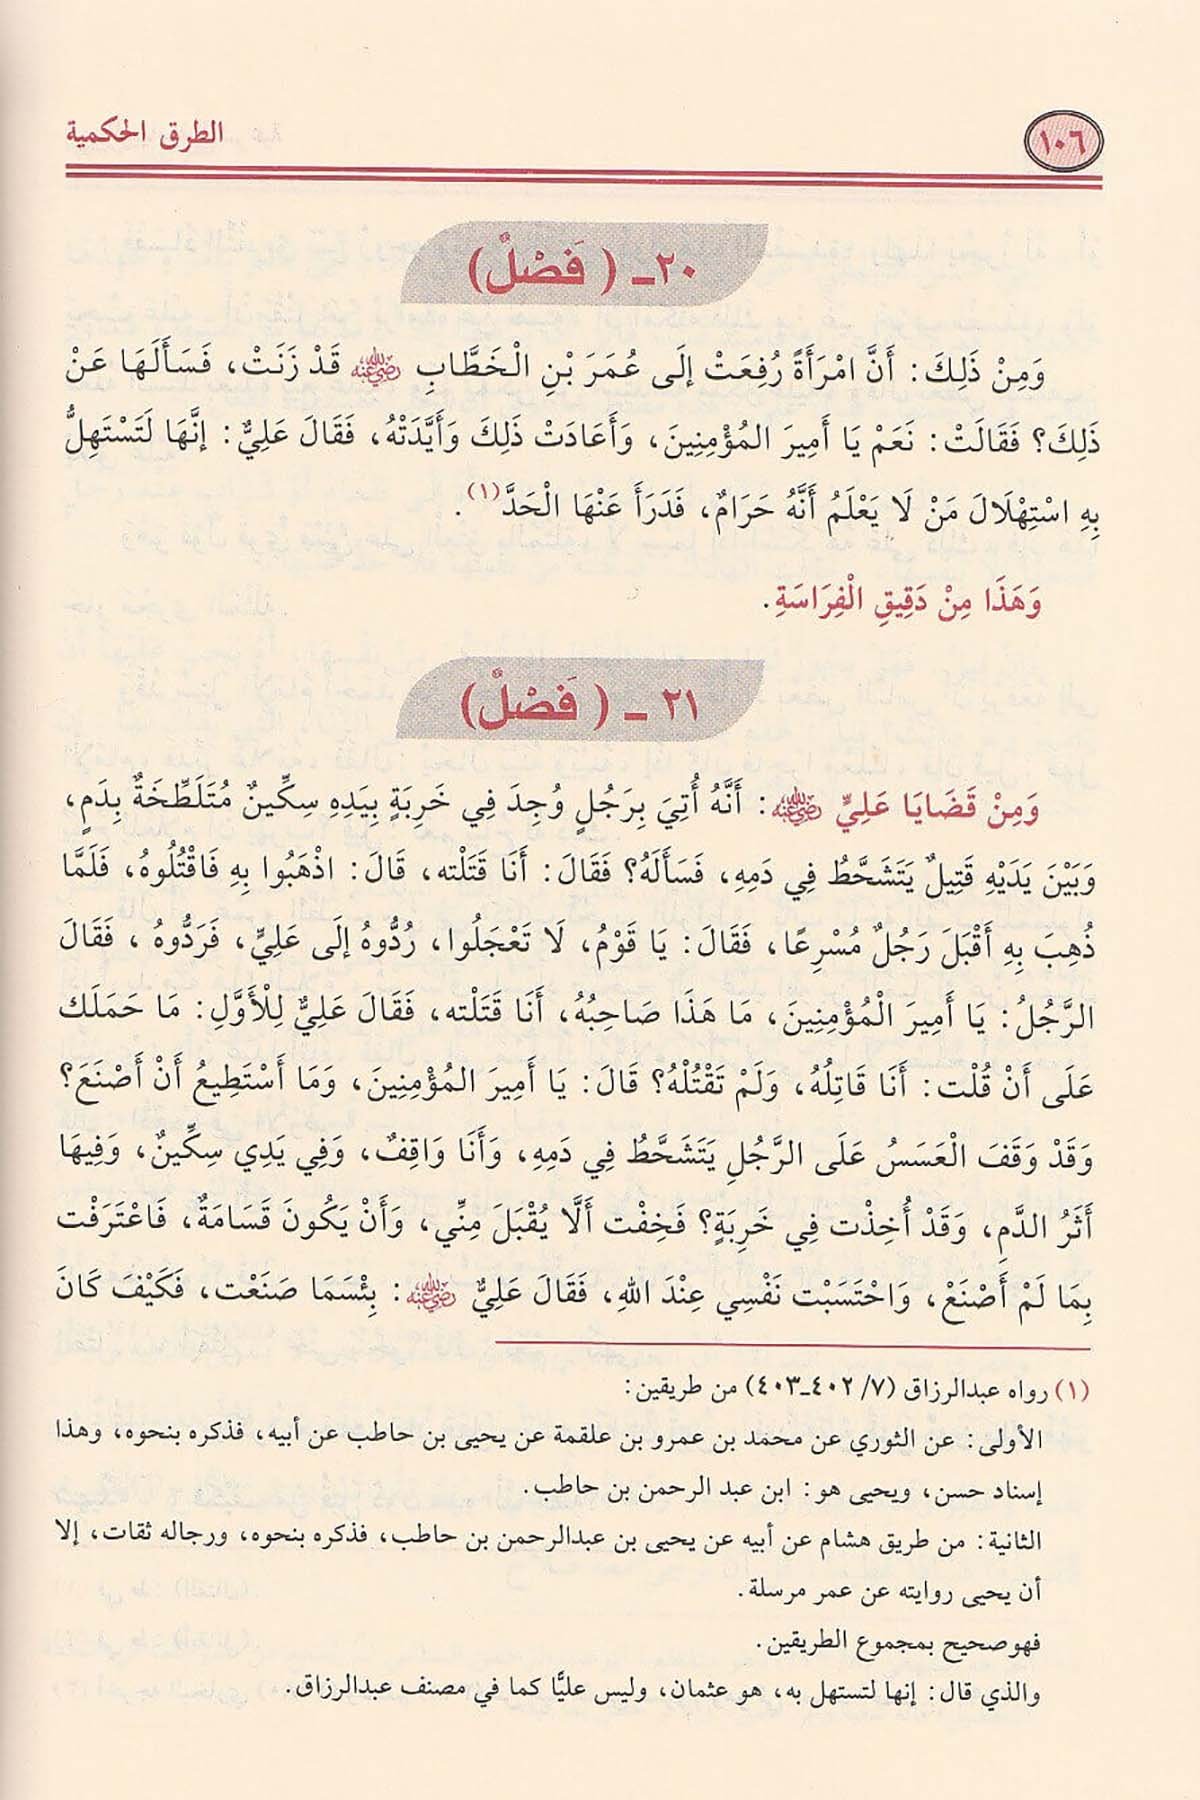 ١٠٦
الطرق الحكمية
٢٠ ـ ( فَصْلٌ)
وَمِنْ ذَلِكَ: أَنَّ امْرَأَةً رُفِعَتْ إلَى عُمَرَ بْنِ الْخَطَّابِ رضي الله عنه قَدْ زَنَتْ، فَسَأَلَهَا عَنْ
ذَلِكَ؟ فَقَالَتْ: نَعَمْ يَا أَمِيرَ المُؤْمِنِينَ، وَأَعَادَتْ ذَلِكَ وَأَيَّدَتْهُ، فَقَالَ عَلِيٌّ: إنَّهَا لَتَسْتَهِلُّ
بِهِ اسْتِهْلَالَ مَنْ لَا يَعْلَمُ أَنَّهُ حَرَامٌ، فَدَرَأَ عَنْهَا الْحَدَّ(١).
وَهَذَا مِنْ دَقِيقِ الْفِرَاسَةِ.
٢١ ـ ( فَصْلٌ)
وَمِنْ قَضَايَا عَلِيٍّ رضي الله عنه: أَنَّهُ أُتِيَ بِرَجُلٍ وُجِدَ فِي خَرِبَةٍ بِيَدِهِ سِكِّينٌ مُتَلَطِّخَةٌ بِدَمٍ،
وَبَيْنَ يَدَيْهِ قَتِيلٌ يَتَشَحَّطُ فِي دَمِهِ، فَسَأَلَهُ؟ فَقَالَ: أَنَا قَتَلْته، قَالَ: اذْهَبُوا بِهِ فَاقْتُلُوهُ، فَلَمَّا
ذُهِبَ بِهِ أَقْبَلَ رَجُلٌ مُسْرِعًا، فَقَالَ: يَا قَوْمُ، لَا تَعْجَلُوا، رُدُّوهُ إلَى عَلِيٍّ، فَرَدُّوهُ ، فَقَالَ
الرَّجُلُ: يَا أَمِيرَ الْمُؤْمِنِينَ، مَا هَذَا صَاحِبُهُ، أَنَا قَتَلْته، فَقَالَ عَلِيٌّ لِلْأَوَّلِ: مَا حَمَلَك
عَلَى أَنْ قُلْت: أَنَا قَاتِلُهُ، وَلَمْ تَقْتُلْهُ؟ قَالَ: يَا أَمِيرَ المُؤْمِنِينَ، وَمَا أَسْتَطِيعُ أَنْ أَصْنَعَ؟
وَقَدْ وَقَفَ الْعَسَسُ عَلَى الرَّجُلِ يَتَشَحَّطُ فِي دَمِهِ، وَأَنَا وَاقِفٌ، وَفِي يَدِي سِكِّينٌ، وَفِيهَا
أَثَرُ الدَّمِ، وَقَدْ أُخِذْت فِي خَرِبَةٍ؟ فَخِفْت أَلَّا يُقْبَلَ مِنِّي، وَأَنْ يَكُونَ قَسَامَةٌ، فَاعْتَرَفْت
بِمَا لَمْ أَصْنَعْ، وَاحْتَسَبْت نَفْسِي عِنْدَ اللهِ، فَقَالَ عَلِيٌّ رضي الله عنه: بِئْسَمَا صَنَعْت، فَكَيْفَ كَانَ
(١) رواه عبدالرزاق (٧/ ٤٠٢ـ٤٠٣) من طريقين:
الأولى: عن الثوري عن محمد بن عمرو بن علقمة عن يحيى بن حاطب عن أبيه، فذكره بنحوه، وهذا
إسناد حسن، ويحيى هو: ابن عبد الرحمن بن حاطب.
الثانية: من طريق هشام عن أبيه عن يحيى بن عبدالرحمن بن حاطب، فذكره بنحوه، ورجاله ثقات، إلا
أن يحيى روايته عن عمر مرسلة.
فهو صحيح بمجموع الطريقين.
والذي قال: إنها لتستهل به، هو عثمان، وليس عليًّا كما في مصنف عبدالرزاق.